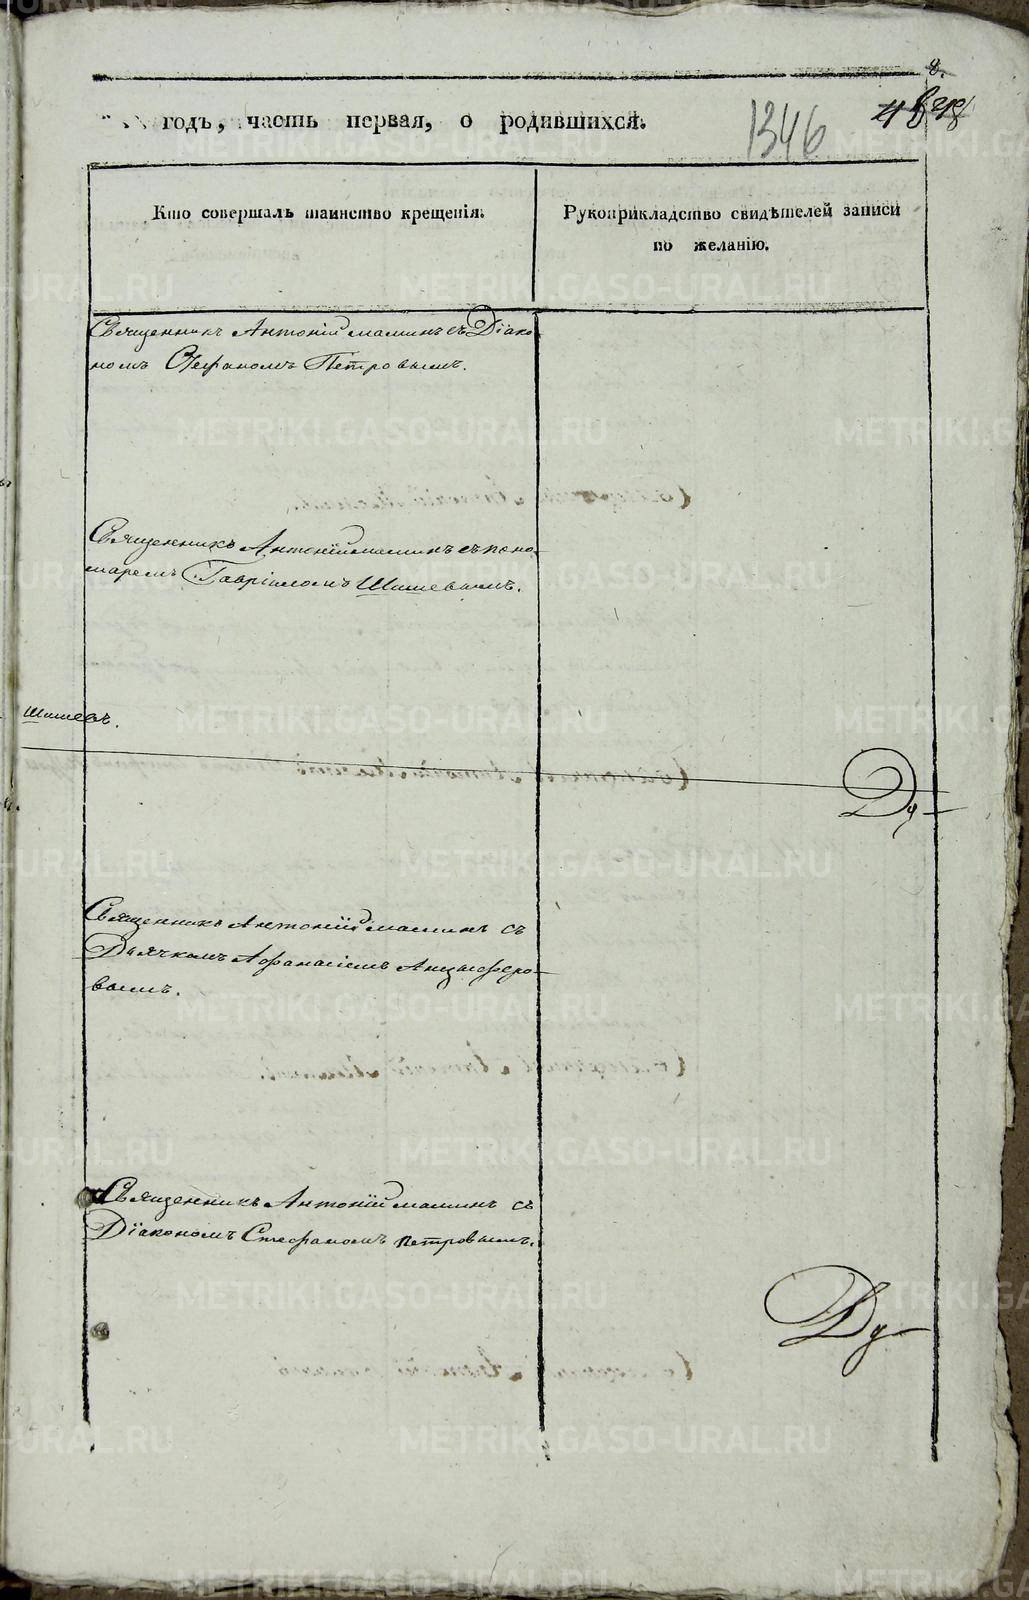 8.
годъ, часть первая, о родившихся.
1346
Кто совершалъ таинство крещенія.
Рукоприкладство свидѣтелей записи
по желанію.
Священникъ Антоній Маминъ съ Діако-
номъ Стефаномъ Петровымъ.
Священникъ Антоній Маминъ съ поно-
маремъ Гавріиломъ Шишевымъ.
Шишевъ.
Ду-
Священникъ Антоній Маминъ съ
Дьячкомъ Афанасіемъ Анциферо-
вымъ.
Священникъ Антоній Маминъ съ
Діакономъ Стефаномъ Петровымъ.
Ду-
METRIKI.GASO-URAL.RU